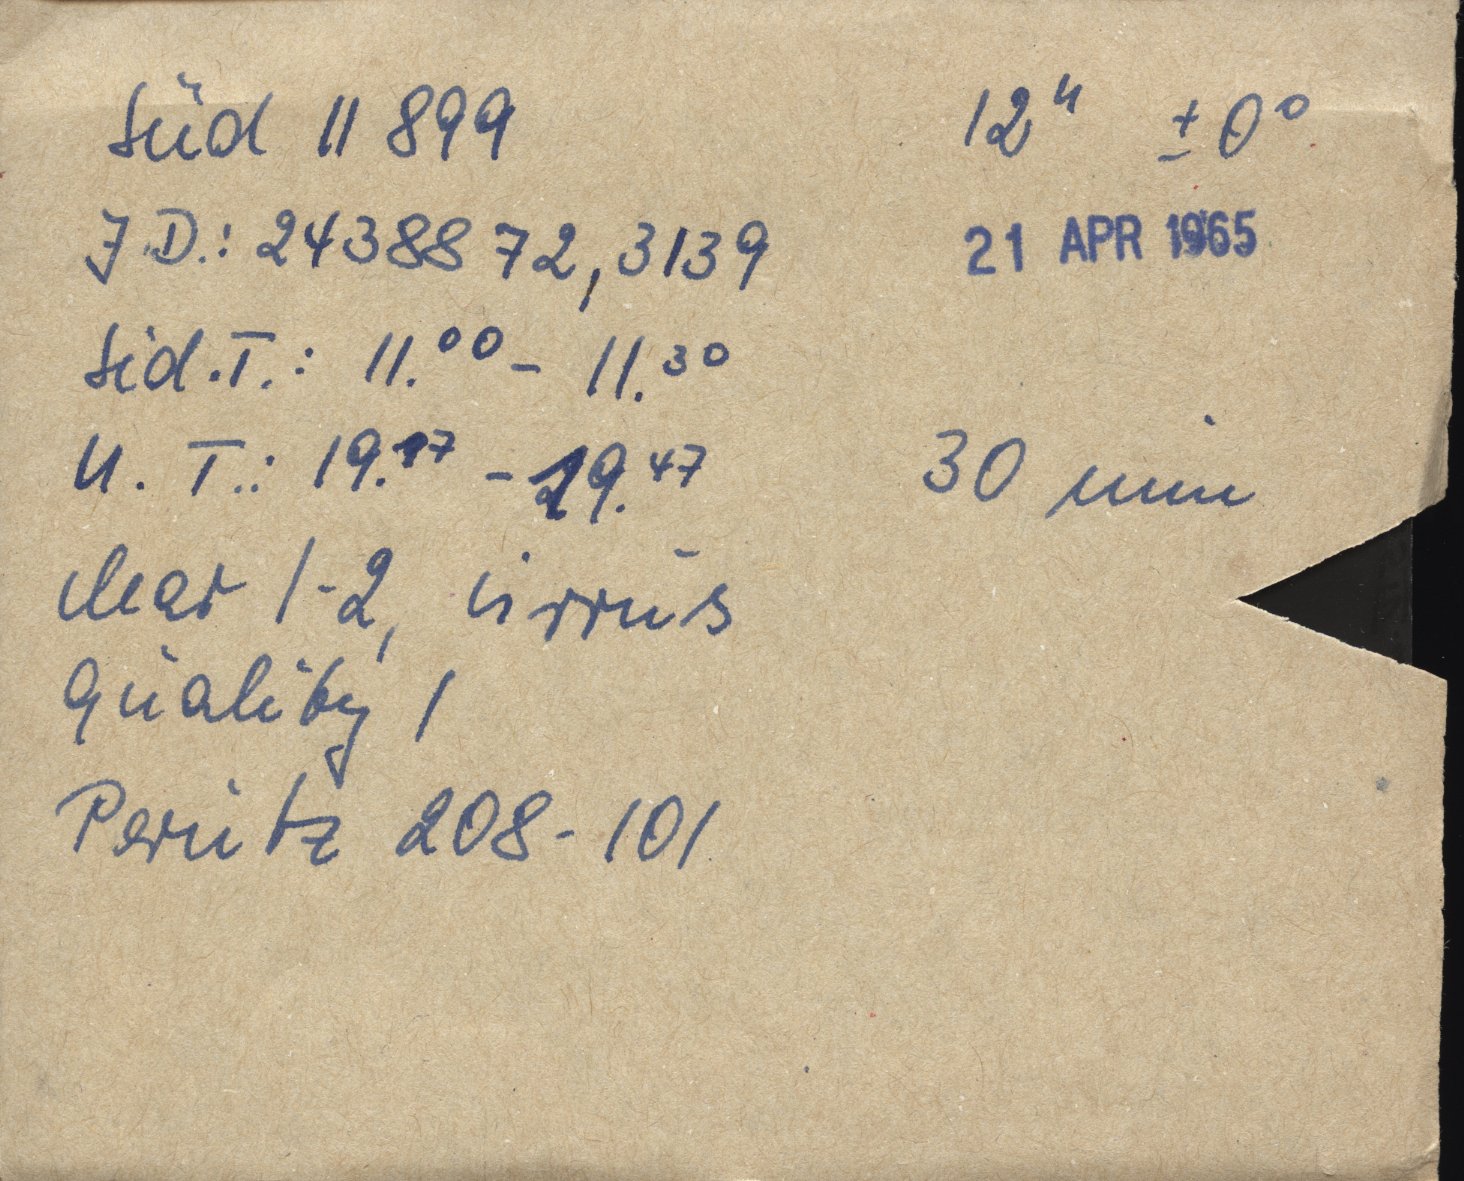 Süd 11 899 12ʰ ±0°
J.D.: 2438872,3139 21 APR 1965
Sid.T.: 11.⁰⁰ - 11.³⁰
U.T.: 19.¹⁷ - 19.⁴⁷ 30 min
clear 1-2, cirrus
Quality 1
Perutz 208-101